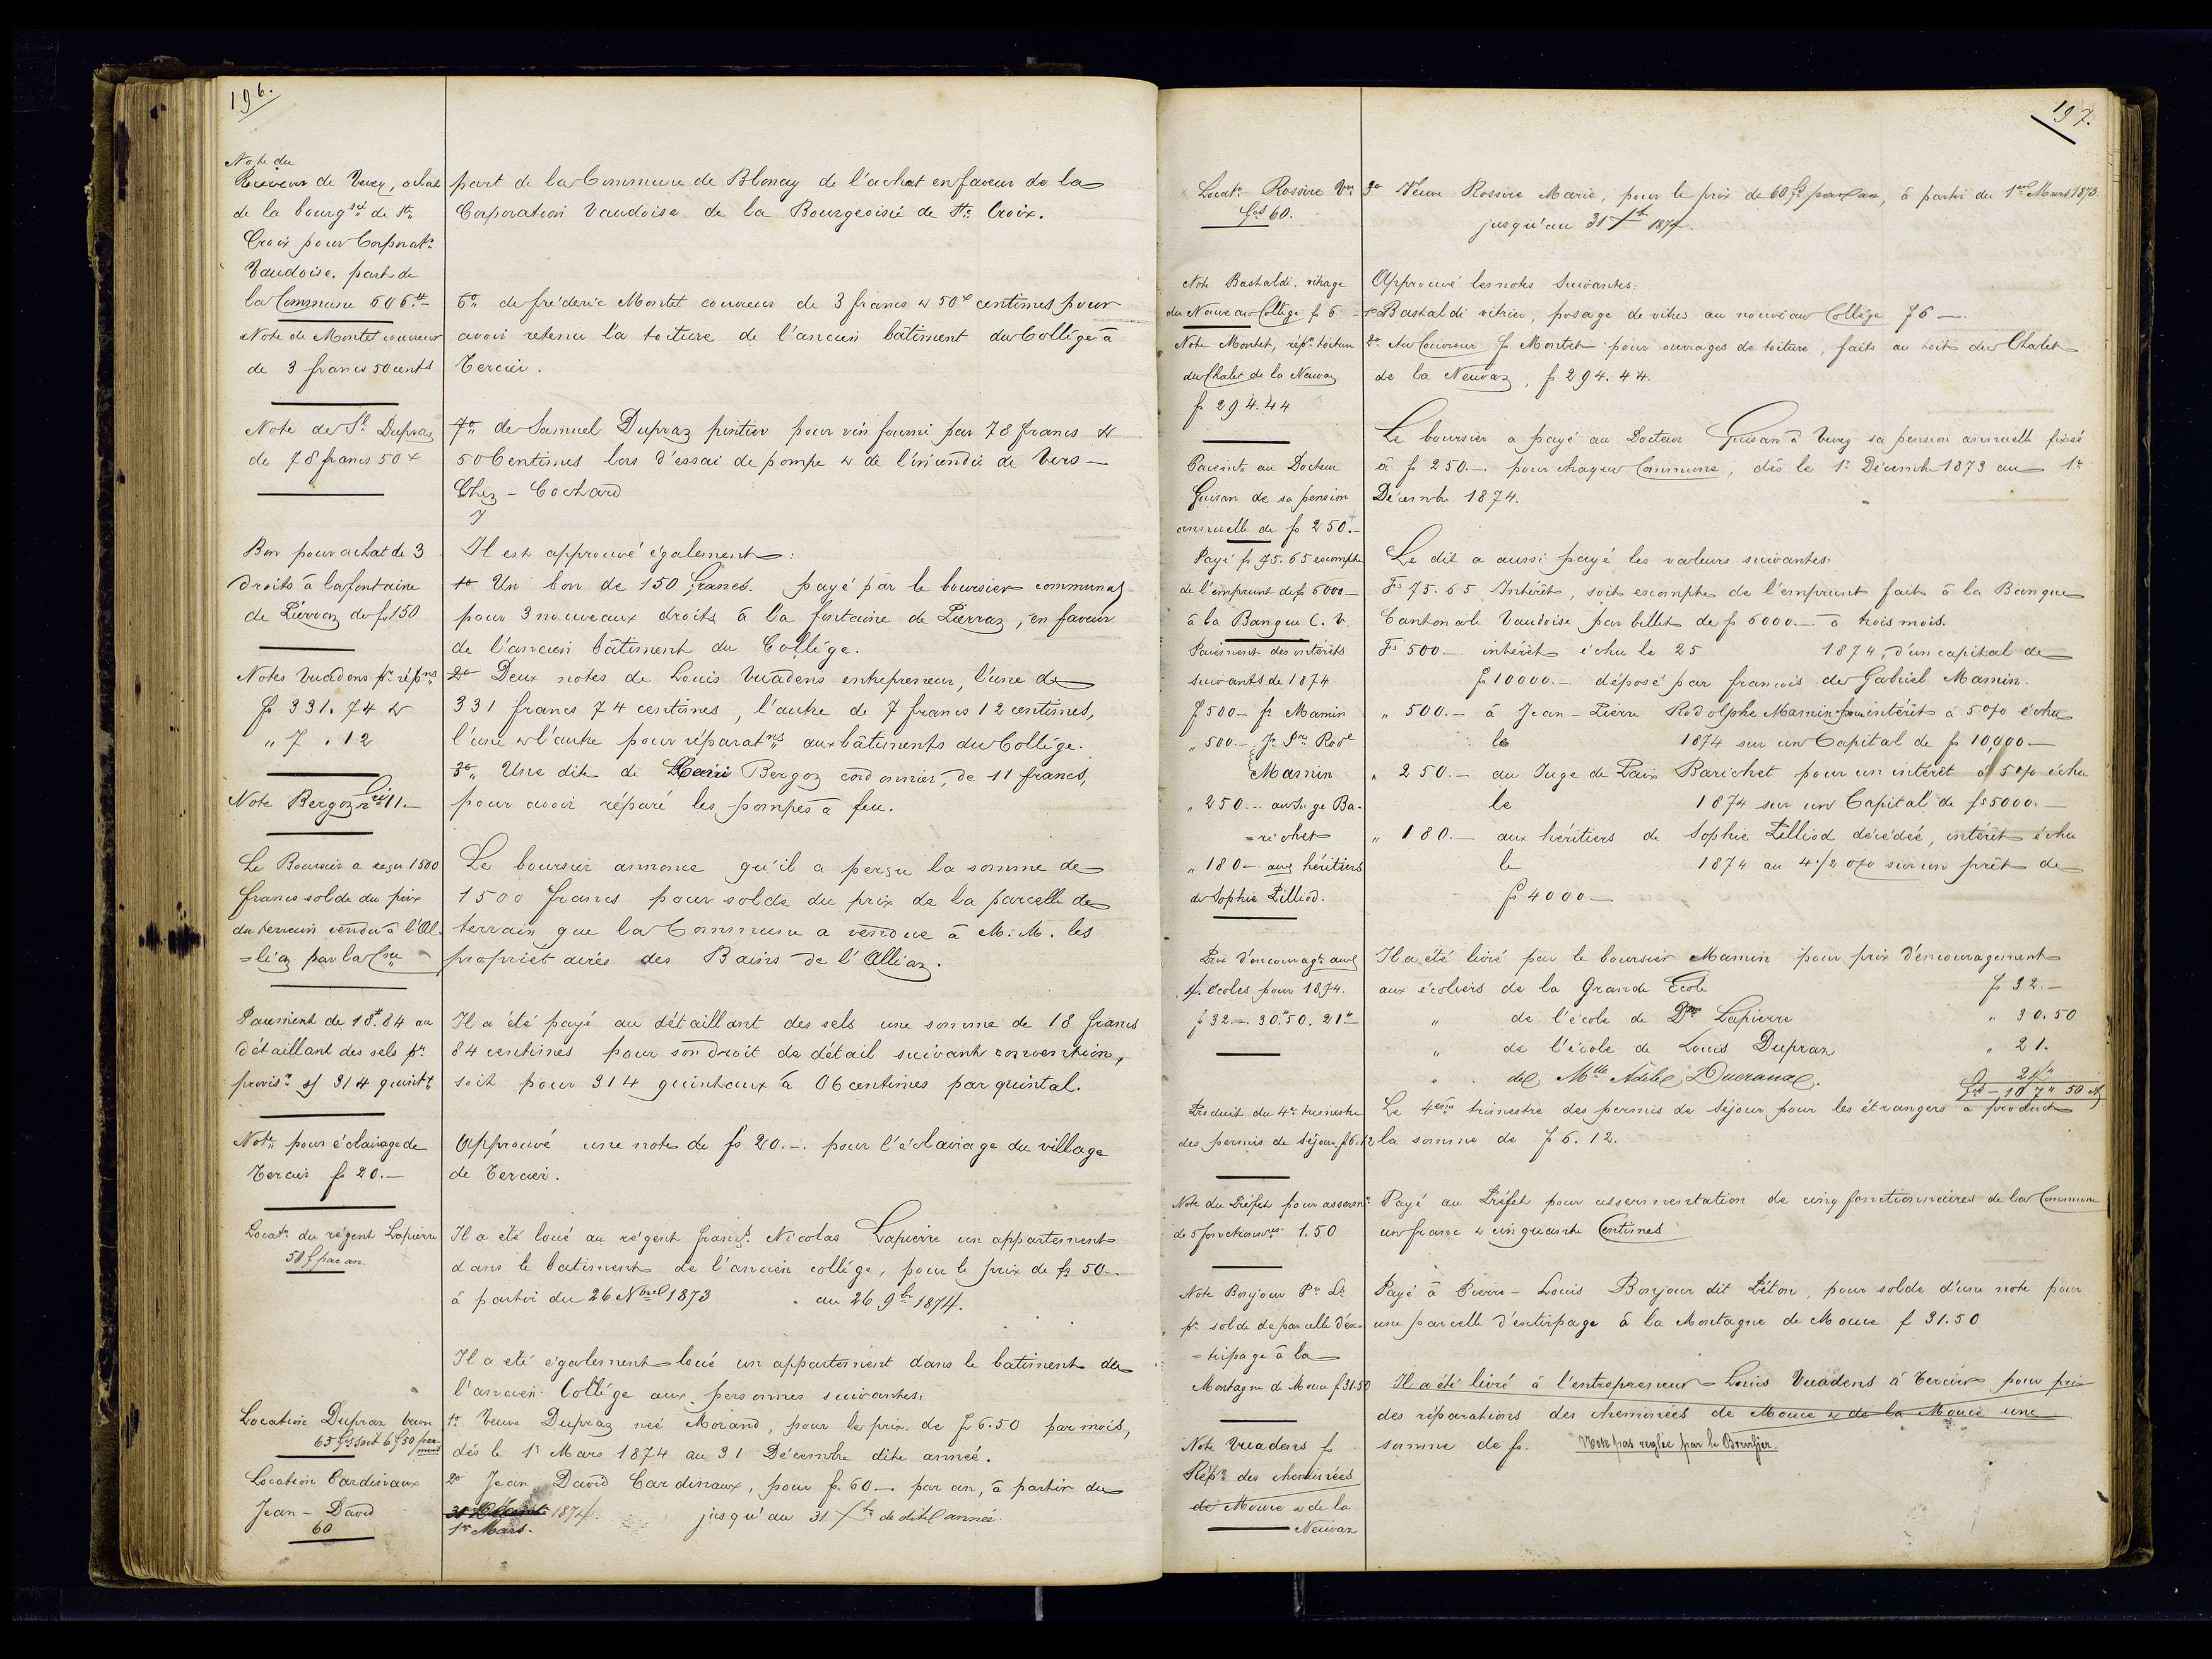 196.
Note du
Receveur de Vevey, achat
de la bourg.sie de Ste
Croix pour Corporat.n
Vaudoise. part de
la Commune 606.
Note de Montet couvreur
de 3 francs 50 cents
Note de Sl Dupraz
de 78 francs 50
Bon pour achat de 3
droits à la fontaine
de Pierraz de f 150
Notes Vuadens pr répns
fs 331. 74 &
" 7 . 12
Note Bergoz Hri 11.—
Le Boursier a reçu 1500
francs solde du prix
du terrain vendu à l'Al-
=liaz par la Cne
Paiement de 18.84 au
détaillant des sels pr
provisn s/ 314 quintx
Note pour éclairage de
Tercier fs 20.—
Locatn du régent Lapierre
50 f par an.
Location Dupraz Veuve
65 fcs soit 6 f 50 par
mois
Location Cardinaux
Jean - David
60
part de la Commune de Blonay de l'achat en faveur de la
Corporation Vaudoise de la Bourgeoisie de Ste Croix.
6o de fréderic Montet couvreur de 3 francs & 50 centimes pour
avoir retenu la toiture de l'ancien bâtiment du Collége à
Tercier.
7o de Samuel Dupraz pintier pour vin fourni par 78 francs &
50 Centimes lors d'essai de pompe & de l'incendie de Vers —
Chez - Cochard
Il est approuvé également :
1o Un bon de 150 francs. payé par le boursier communal
pour 3 nouveaux droits à la fontaine de Pierraz, en faveur
de l'ancien bâtiment du Collége.
2o Deux notes de Louis Vuadens entrepreneur, l'une de
331 francs 74 centimes, l'autre de 7 francs 12 centimes,
l'une & l'autre pour réparatns aux bâtiments du Collége.
3o Une dite de Henri Bergoz cordonnier, de 11 francs,
pour avoir réparé les pompes à feu.
Le boursier annonce qu'il a perçu la somme de
1500 francs pour solde du prix de la parcelle de
terrain que la Commune a vendue à M. M. les
propriétaires des Bains de l'Alliaz.
Il a été payé au détaillant des sels une somme de 18 francs
84 centimes pour son droit de détail suivant convention,
soit pour 314 quintaux à 06 centimes par quintal.
Approuvé une note de fs 20.—. pour l'éclairage du village
de Tercier.
Il a été loué au régent franç. Nicolas Lapierre un appartement
dans le batiment de l'ancien collége, pour le prix de fs 50—.
à partir du 26 Nbre 1873 au 26 9br 1874.
Il a été également loué un appartement dans le batiment de
l'ancien Collége aux personnes suivantes:
1o Veuve Dupraz née Morand, pour le prix de f 6.50 par mois,
dès le 1r Mars 1874 au 31 Décembre dite année.
2o Jean David Cardinaux, pour f. 60.— par an, à partir du
1874. jusqu'au 31 Xbr de dite année.
1r Mars.
197.
Locatn Rossire Vve
fcs 60.
Note Bastaldi, vitrage
du Nouveau Collége f 6
Note Montet, répn toiture
du Chalet de la Neuvaz
fs 294.44
Paiemt au Docteur
Guisan de sa pension
annuelle de fs 250.—
Payé fs 75.65 escompte
de l'emprunt de fs 6000—
à la Banque C. V.
Paiement des intérêts
suivants de 1874
f 500— fs Mamin
" 500.— Jn Pre Rodl
Mamin
" 250.— au Juge Ba-
=richet
" 180— aux héritiers
de Sophie Pilliod.
Prix d'encouragt aux
4. écoles pour 1874.
fs 32.—. 30.50. 21
Produit du 4e trimestre
des permis de Séjour. f 6.12
Note du Préfet pour asserm.
de 5 fonctionnres 1.50
Note Bonjour Pr Ls
pr solde de parcelle d'ex-
=tirpage à la
Montagne de Mouce f 31.50
Note Vuadens f
Répn des cheminées
de Mouce & de la
Neuvaz
3o Veuve Rossire Marie, pour le prix de 60 fs par an, à partir du 1er Mars 1873.
jusqu'au 31 Xbr 1874.
Approuvé les notes suivantes:
1o Bastaldi vitrier, posage de vitres au nouveau Collége f 6 —.
2o Au Couvreur fs Montet pour ouvrages de toiture, faits au toit du Chalet
de la Neuvaz, fs 294.44.
Le boursier a payé au Docteur Guisan à Vevey sa pension annuelle fixée
à fs 250.—. pour chaque Commune, dès le 1r Décembre 1873 au 1r
Décembre 1874.
Le dit a aussi payé les valeurs suivantes:
Fs 75.65 Intérêt, soit escompte de l'emprunt fait à la Banque
Cantonale Vaudoise par billet de fs 6000.—. à trois mois.
Fs 500—. intérêt échu le 25 1874, d'un capital de
fs 10000.— déposé par francois de Gabriel Mamin.
" 500.— à Jean - Pierre Rodolphe Mamin pour intérêt à 5 % échu
le 1874 sur un Capital de fs 10,000—
" 250.— au Juge de Paix Barichet pour un intérêt à 5 % échu
le 1874 sur un Capital de fs 5000.—
" 180.— aux héritiers de Sophie Pilliod décédée, intérêt échu
le 1874 au 4 1/2 % sur un prêt de
fs 4000—
Il a été livré par le boursier Mamin pour prix d'encouragement
aux écoliers de la Grande Ecole fs 32.—
" de l'école de Dme Lapierre " 30.50
" de l'école de Louis Dupraz " 21.
" de Mlle Adèle Ducraux. 24"
fcs — 107" 50 cts
Le 4eme trimestre des permis de séjour pour les étrangers a produit
la somme de f 6. 12.
Payé au Préfet pour assermentation de cinq fonctionnaires de la Commune
un franc & cinquante Centimes
Payé à Pierre - Louis Bonjour dit Péton, pour solde d'une note pour
une parcelle d'extirpage à la Montagne de Mouce f 31.50
Il a été livré à l'entrepreneur Louis Vuadens à Tercier pour prix
des réparations des cheminées de Mouce & de la Mouce une
somme de fs. Note pas reglée par le Boursier.